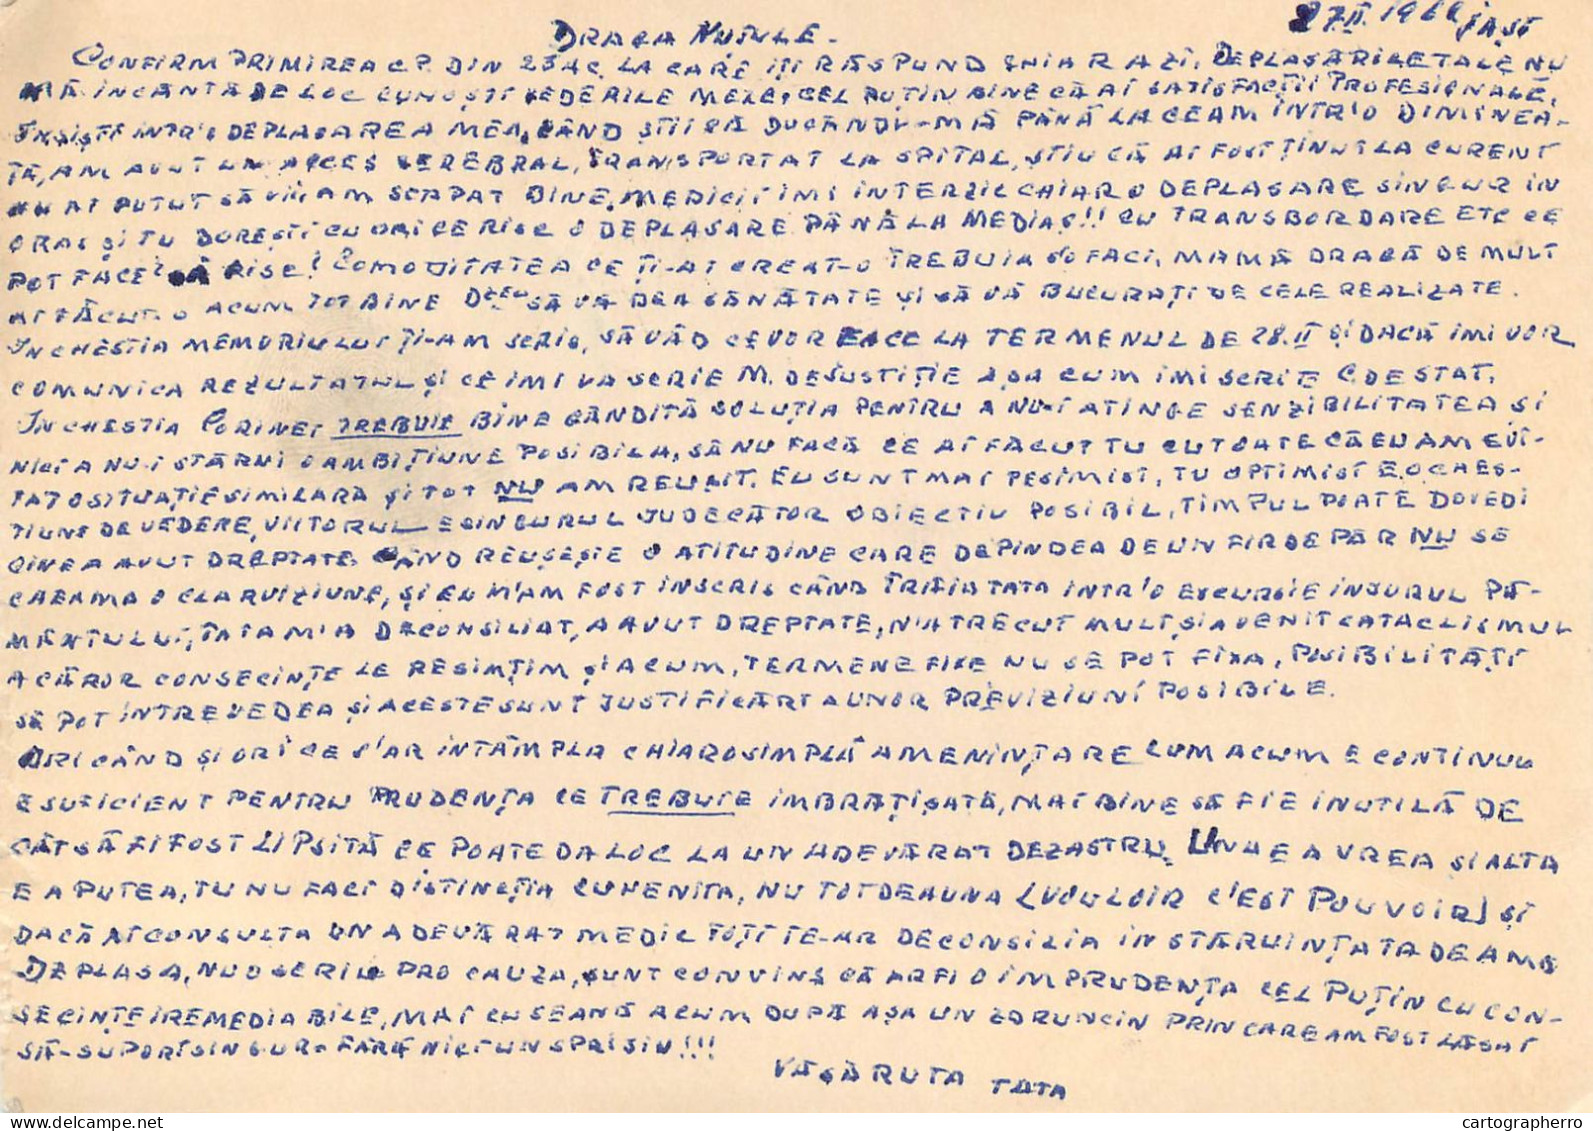 27 II. 1966 Iași
DRAGA NUȚULE.
CONFIRM PRIMIREA C.P. DIN 23 AC. LA CARE ÎȚI RĂSPUND CHIAR AZI. DEPLASĂRILE TALE NU
MĂ INCÂNTĂ DE LOC CUNOȘTI VEDERILE MELE, CEL PUȚIN BINE CĂ AI SATISFACȚII PROFESIONALE.
INSIȘTI INTR'O DEPLASAREA MEA, CÂND ȘTII CĂ DUCÂNDU-MĂ PÂNĂ LA CEAM INTR'O DIMINEA-
ȚĂ, AM AVUT UN ACCES CEREBRAL, TRANSPORTAT LA SPITAL, ȘTIU CĂ AI FOST ȚINUT LA CURENT
NU AI PUTUT SĂ VII AM SCAPAT BINE, MEDICII IMI INTERZIC CHIAR O DEPLASARE SINGUR IN
ORAȘ ȘI TU DOREȘTI CU ORICE RISC O DEPLASARE PÂNĂ LA MEDIAȘ!! CU TRANSBORDARE ETC CE
POT FACE? SĂ RISC! COMODITATEA CE ȚI-AI CREAT-O TREBUIA SO FACI, MAMĂ DRAGĂ DE MULT
AI FĂCUT-O ACUM TOT BINE DZEU SĂ VĂ DEA SĂNĂTATE ȘI SĂ VĂ BUCURAȚI DE CELE REALIZATE.
IN CHESTIA MEMORIULUI ȚI-AM SCRIS, SĂ VĂD CE VOR FACE LA TERMENUL DE 28.II ȘI DACĂ IMI VOR
COMUNICA REZULTATUL ȘI CE IMI VA SCRIE M. DE JUSTIȚIE AȘA CUM IMI SCRIE C. DE STAT.
IN CHESTIA CORINEI TREBUIE BINE GÂNDITĂ SOLUȚIA PENTRU A NU-I ATINGE SENZIBILITATEA ȘI
NICI A NU-I STÂRNI O AMBIȚIUNE POSIBILA, SĂ NU FACĂ CE AI FĂCUT TU CU TOATE CĂ EU AM EVI-
TAT O SITUAȚIE SIMILARĂ ȘI TOT NU AM REUȘIT. EU SUNT MAI PESIMIST, TU OPTIMIST E O CHES-
TIUNE DE VEDERE, VIITORUL E SINGURUL JUDECĂTOR OBIECTIV POSIBIL, TIMPUL POATE DOVEDI
CINE A AVUT DREPTATE. CÂND REUȘEȘTE O ATITUDINE CARE DEPINDEA DE UN FIR DE PĂR NU SE
CHEAMA O CLARVIZIUNE, ȘI EU M'AM FOST INSCRIS CÂND TRĂIA TATA INTR'O EXCURSIE IN JURUL PĂ-
MÂNTULUI, TATA M'A DECONSILIAT, A AVUT DREPTATE, N'A TRECUT MULT ȘI A VENIT CATACLISMUL
A CĂROR CONSECINȚE LE RESIMȚIM ȘI ACUM, TERMENE FIXE NU SE POT FIXA, POSIBILITĂȚI
SE POT INTREVEDEA ȘI ACESTE SUNT JUSTIFICĂRI A UNOR PREVIZIUNI POSIBILE.
ORICÂND ȘI ORICE S'AR INTÂMPLA CHIAR O SIMPLĂ AMENINȚARE CUM ACUM E CONTINUU
E SUFICIENT PENTRU PRUDENȚA CE TREBUIE IMBRĂȚIȘATĂ, MAI BINE SĂ FIE INUTILĂ DE
CÂT SĂ FI FOST LIPSITĂ CE POATE DA LOC LA UN ADEVĂRAT DEZASTRU. UNA E A VREA ȘI ALTA
E A PUTEA, TU NU FACI DISTINCȚIA CUVENITA, NU TOTDEAUNA (VOULOIR C'EST POUVOIR) ȘI
DACĂ AI CONSULTA UN ADEVĂRAT MEDIC TOȚI TE-AR DECONSILIA IN STĂRUINȚA TA DE A MĂ
DEPLASA, NU O SCRIU PRO CAUZA, SUNT CONVINS CĂ AR FI O IMPRUDENȚA CEL PUȚIN CU CON-
SECINȚE IREMEDIABILE, MAI CU SEAMĂ ACUM DUPĂ AȘA UN ZDRUNCIN PRIN CARE AM FOST LĂSAT
SĂ-SUPORT SINGUR FĂRĂ NICI UN SPRIJIN!!!
VĂ SĂRUTA TATA
cartographerro